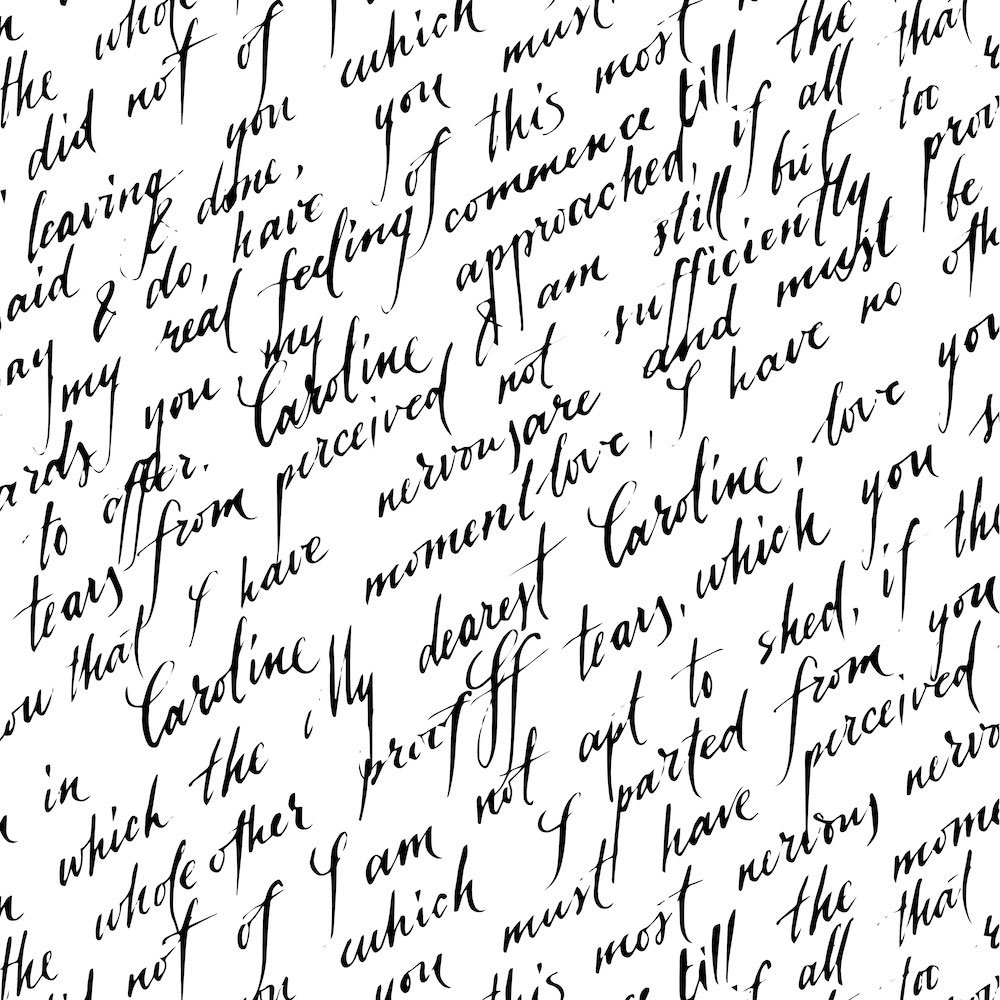 the whole
did not of
leaving you which
said & done, you must
ay & do, have of this most
my real feeling commence till the
ards you, my approached, if all that
to offer. Caroline & am still but too
tears from perceived not sufficiently prov
ou that I have nervous are and must be
Caroline moment love, I have no oth
in My dearest Caroline, love you
which the proof ff tears, which you s
whole other not apt to shed, if the
the not of I am I parted from you
which must have perceived
you this most nervous nervo
till the mome
if all that
too